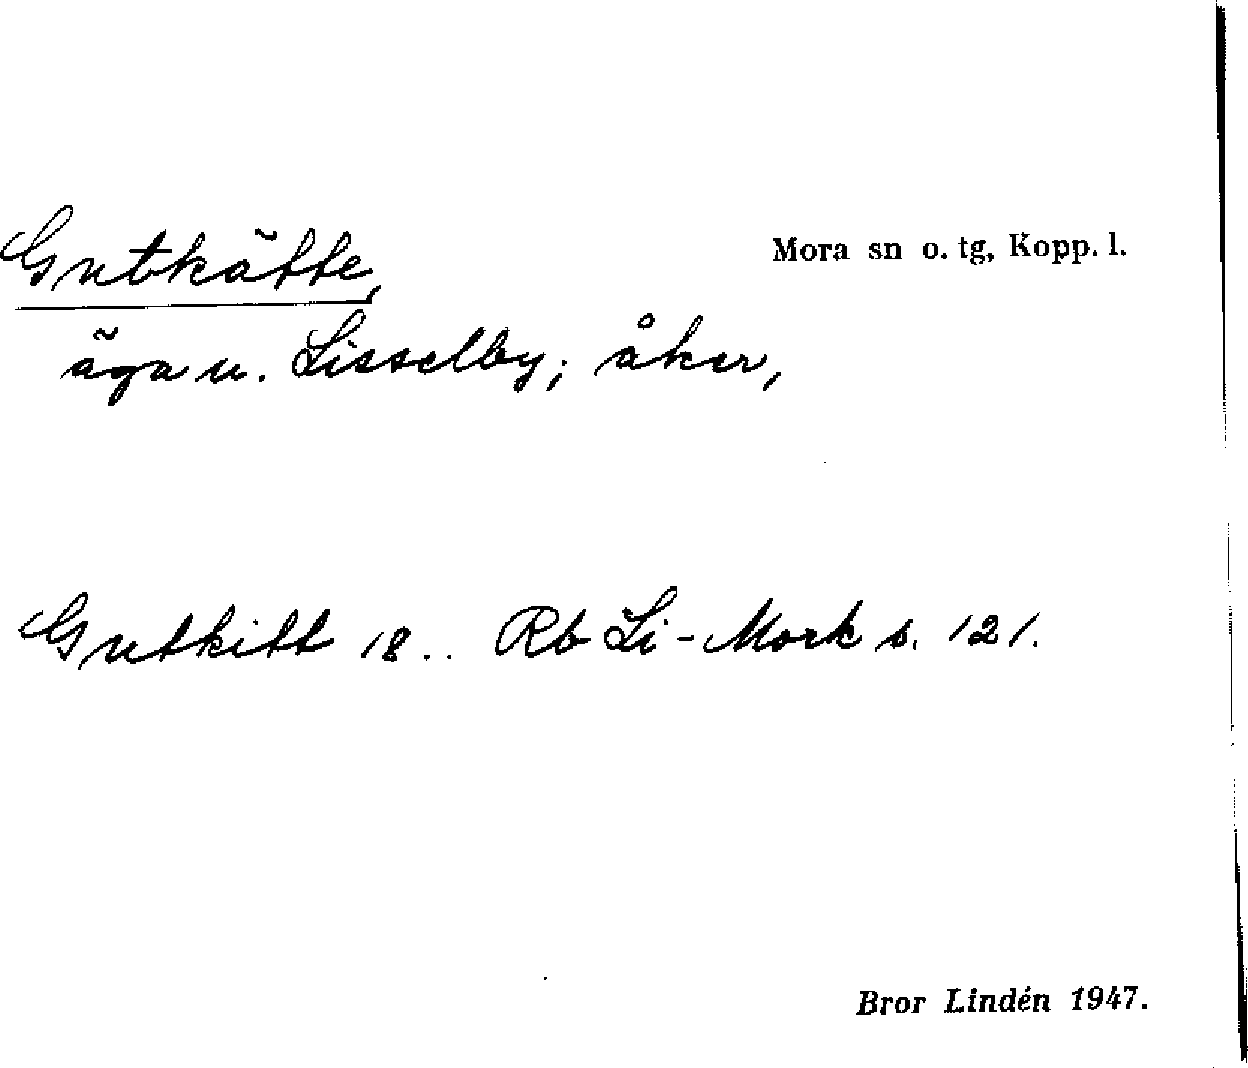 Gutkätte, Mora sn o. tg, Kopp. l.
äga u. Lisselby; åker,
Gutkitt 18.. Rb Li-Mork s. 121.
Bror Lindén 1947.